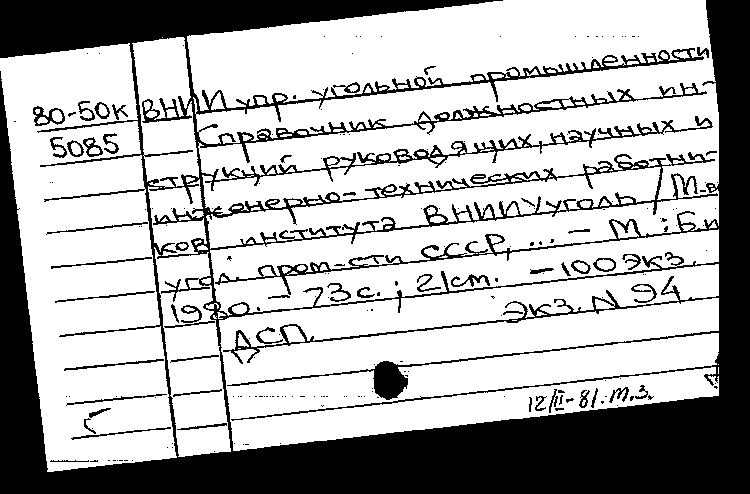 80-50к ВНИИ упр. угольной промышленности
5085 Справочник должностных ин-
струкций руководящих, научных и
инженерно-технических работни-
ков института ВНИИУуголь / М-во
угол. пром-сти СССР, ... - М.: Б.и
1980. - 73 с.; 21 ст. - 100 экз.
ДСП. Экз. N 94.
12/II-81. т.з.